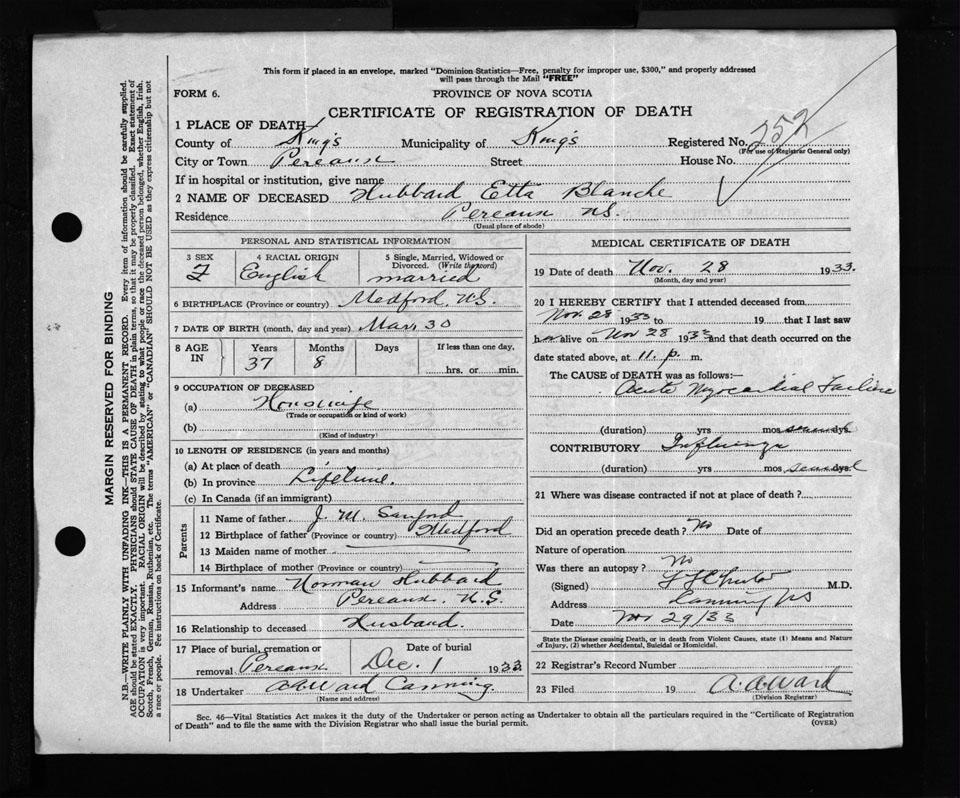 This form if placed in an envelope, marked "Dominion-Statistics—Free, penalty for improper use, $300," and properly addressed
will pass through the Mail "FREE"
FORM 6.
PROVINCE OF NOVA SCOTIA
CERTIFICATE OF REGISTRATION OF DEATH
1 PLACE OF DEATH
County of King's Municipality of King's Registered No. 252
(For use of Registrar General only)
City or Town Pereaux Street House No.
If in hospital or institution, give name
2 NAME OF DECEASED Hubbard Etta Blanche
Residence Pereaux N.S.
(Usual place of abode)
PERSONAL AND STATISTICAL INFORMATION
3 SEX F
4 RACIAL ORIGIN English
5 Single, Married, Widowed or Divorced. (Write the word) married
6 BIRTHPLACE (Province or country) Medford, N.S.
7 DATE OF BIRTH (month, day and year) Mar 30
8 AGE IN Years 37 Months 8 Days If less than one day, hrs. or min.
9 OCCUPATION OF DECEASED
(a) Housewife
(Trade or occupation or kind of work)
(b)
(Kind of industry)
10 LENGTH OF RESIDENCE (in years and months)
(a) At place of death
(b) In province Lifetime.
(c) In Canada (if an immigrant)
Parents
11 Name of father J. M. Sanford
12 Birthplace of father (Province or country) Medford
13 Maiden name of mother
14 Birthplace of mother (Province or country)
15 Informant's name Norman Hubbard
Address Pereaux, N.S.
16 Relationship to deceased Husband.
17 Place of burial, cremation or removal. Pereaux Date of burial Dec. 1 1933
18 Undertaker A A Ward Canning.
(Name and address)
MEDICAL CERTIFICATE OF DEATH
19 Date of death Nov. 28 1933.
(Month, day and year)
20 I HEREBY CERTIFY that I attended deceased from
Nov. 28 1933 to 19 that I last saw
h er alive on Nov 28 1933 and that death occurred on the
date stated above, at 11. p. m.
The CAUSE OF DEATH was as follows:—
Acute Myocardial Failure
(duration) yrs mos dys.
CONTRIBUTORY Influenza
(duration) yrs mos several dys
21 Where was disease contracted if not at place of death?
Did an operation precede death? No Date of
Nature of operation
Was there an autopsy? No
(Signed) M.D.
Address Canning NS
Date Nov 29/33
State the Disease causing Death, or in death from Violent Causes, state (1) Means and Nature
of Injury, (2) whether Accidental, Suicidal or Homicidal.
22 Registrar's Record Number
23 Filed 19 A. A. Ward
(Division Registrar)
Sec. 46—Vital Statistics Act makes it the duty of the Undertaker or person acting as Undertaker to obtain all the particulars required in the "Certificate of Registration
of Death" and to file the same with the Division Registrar who shall issue the burial permit.
(OVER)
MARGIN RESERVED FOR BINDING
N.B.—WRITE PLAINLY WITH UNFADING INK—THIS IS A PERMANENT RECORD. Every item of information should be carefully supplied.
AGE should be stated EXACTLY. PHYSICIANS should STATE CAUSE OF DEATH in plain terms, so that it may be properly classified. Exact statement of
OCCUPATION is very important. RACIAL ORIGIN will be described by stating to what people or race the deceased person belonged, whether English, Irish,
Scotch, French, German, Russian, Ruthenian, etc. The terms "AMERICAN" or "CANADIAN" SHOULD NOT BE USED as they express citizenship but not
a race or people. Fee instructions on back of Certificate.